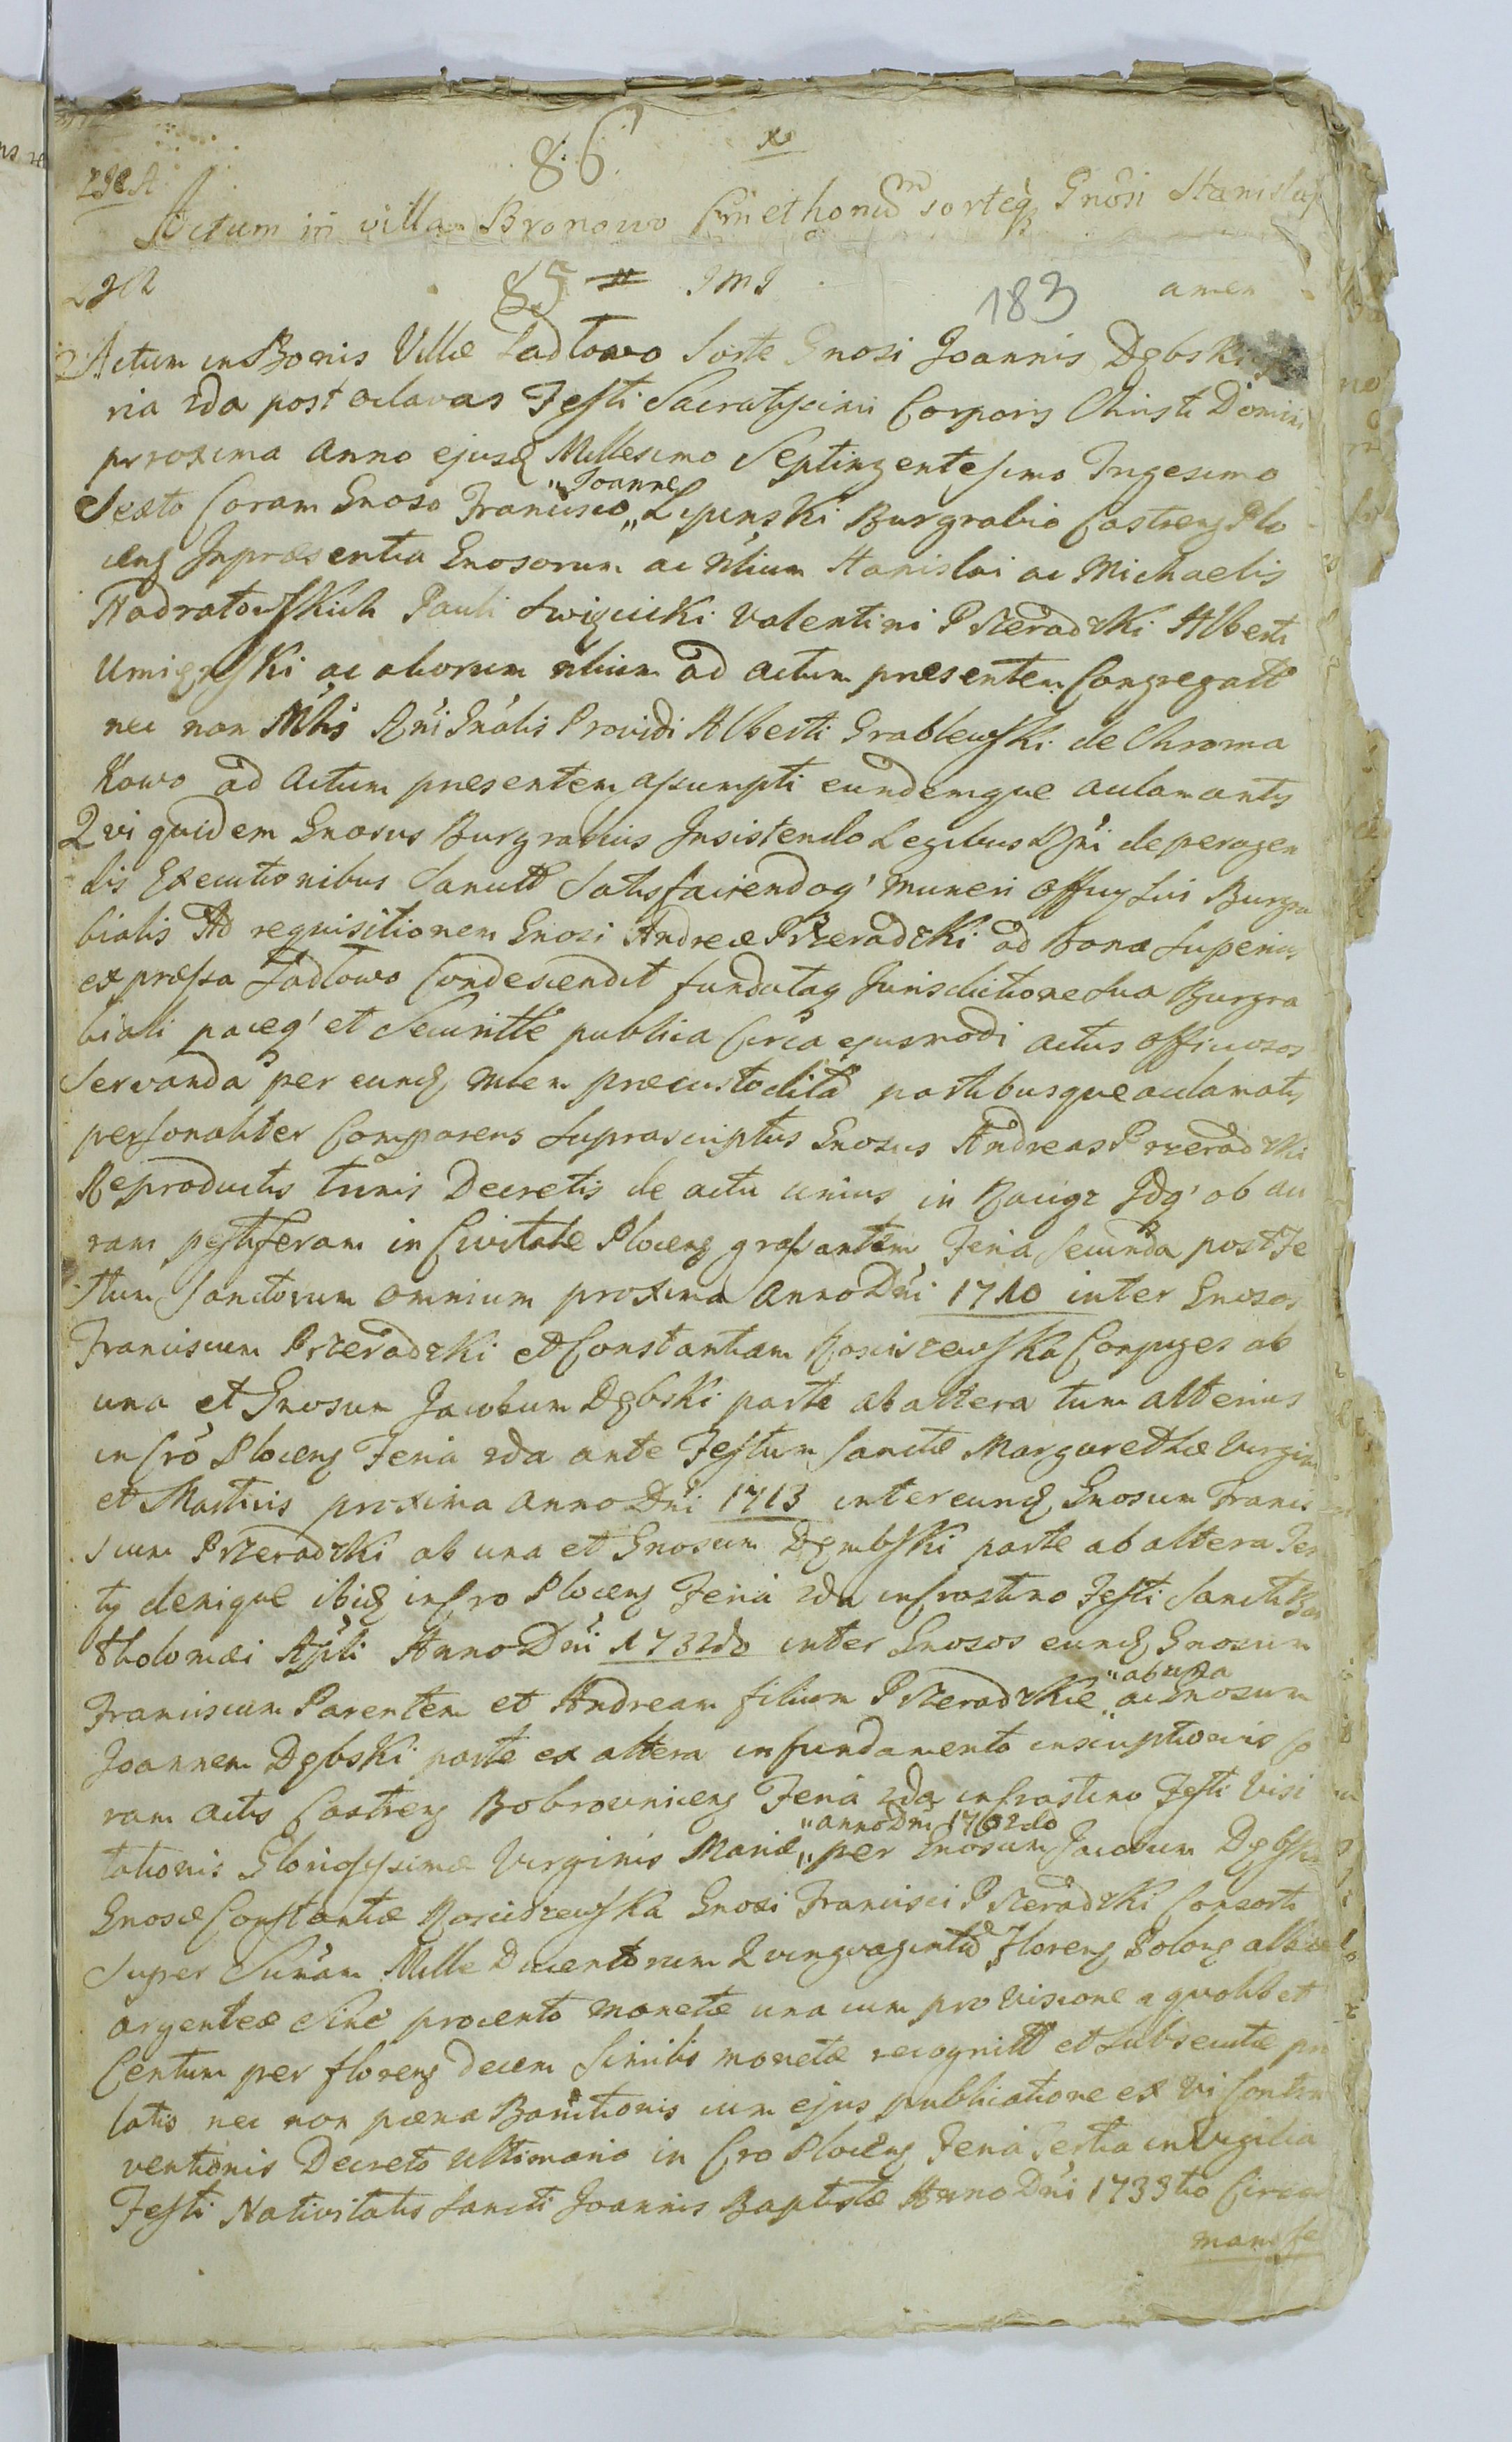 86
Actum in villa Bronowo Cmethonu sorteq Gnosi Stanislai
85 JMJ 183 amen
Actum in Bonis Villæ Ladtowo Sorte Gnosi Joannis Dębski
ria 2da post octavas Festi Sacratissimi Corporis Christi Domini
proxima Anno ejusd Millesimo Septingentesimo Trigesimo
Sexto Coram Gnoso Francisco „Joanne„ Lipinski Burgrabio Castrens Plo
cens Inpræsentia Gnosorum ac Nlium Stanislai ac Michaelis
Nadratowskich Pauli Swięcicki Valentini Przeradzki Alberti
Umięnski ac aliorum nlium ad actum præsentem Congregatt
nec non Mnis Rni Gnalis Providi Alberti Grablewski de Chroma
kowo ad Actum præsentem assumpti eundemque aclamantis
Qui quidem Gnosus Burgrabius Insistendo Legibus Rni de peragen
dis Executionibus Sancitt Satisfaciendoq' muneri officy sui Burgra
bialis Ad requisitionem Gnosi Andreæ Przeradzki ad bona Superius
expressa Ladtowo Condescendit fundataq Jurisdictione sua Burgra
biali paceq' et Securitte publica Circa ejusmodi actus officiosos
Servanda per eund Mlem præcustodita partibusque aclamatis
personaliter Comparens Suprascriptus Gnosus Andreas Przeradzki
Reproductis trinis Decretis de actu unius in Raciąż Idq' ob au
ram pestiferam in Civitate Plocens grassantem Feria Secunda post Fe
stum Sanctorum omnium proxima Anno Dni 1710 inter Gnosos
Franciscum Przeradzki et Constantiam Rosciszewska Conjuges ab
una et Gnosum Jacobum Dębski parte ab altera tum alterius
in Cro Plocens Feria 2da ante Festum Sanctæ Margarethæ Virginis
et Martiris proxima Anno Dni 1713 inter eund Gnosum Francis
cum Przeradzki ab una et Gnosum Dęmbski parte ab altera Ter
ty denique ibid in Cro Plocens Feria 2da in Crastino Festi Sancti Bar
tholomæi Apli Anno Dni 1732do inter Gnosos eund Gnosum
Franciscum Parentem et Andream filium Przeradzkie „ab una„ ac Gnosum
Joannem Dębski parte ex altera in fundamento inscriptionis Co
ram Actis Castrens Bobrownicens Feria 2da in Crastino Festi Visi
tationis Gloriosissimæ Virginis Mariæ „Anno Dni 1702do„ per Gnosum Jacobum Dębski
Gnosæ Constantiæ Rosciszewska Gnosi Francisci Przeradzki Consorti
Super Sumam Mille Ducentorum Quinquaginta Florens Polons albæ
argenteæ Sine procento monetæ una cum provisione a quolibet
Centum per florens decem Similis monetæ recognitt et subsecutæ
latis nec non pæna Banitionis cum ejus publicatione ex vi Contra
ventionis Decreto Ultimario in Cro Plocens Feria Tertia in Vigilia
Festi Nativitatis Sancti Joannis Baptistæ Anno Dni 1733tio Circa
manife